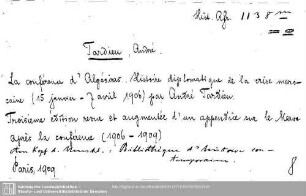 Hist. Afr. 1138 m
Tardieu, André.
La conférence d'Algésiras. Histoire diplomatique de la crise maro-
caine (15 janvier - 7 avril 1906) par André Tardieu.
Troisième édition revue et augmentée d'un appendice sur le Maroc
après la conférence (1906-1909)
Am Kopf d. : Bibliothèque d'histoire con-
temporaine.
Paris, 1909
8